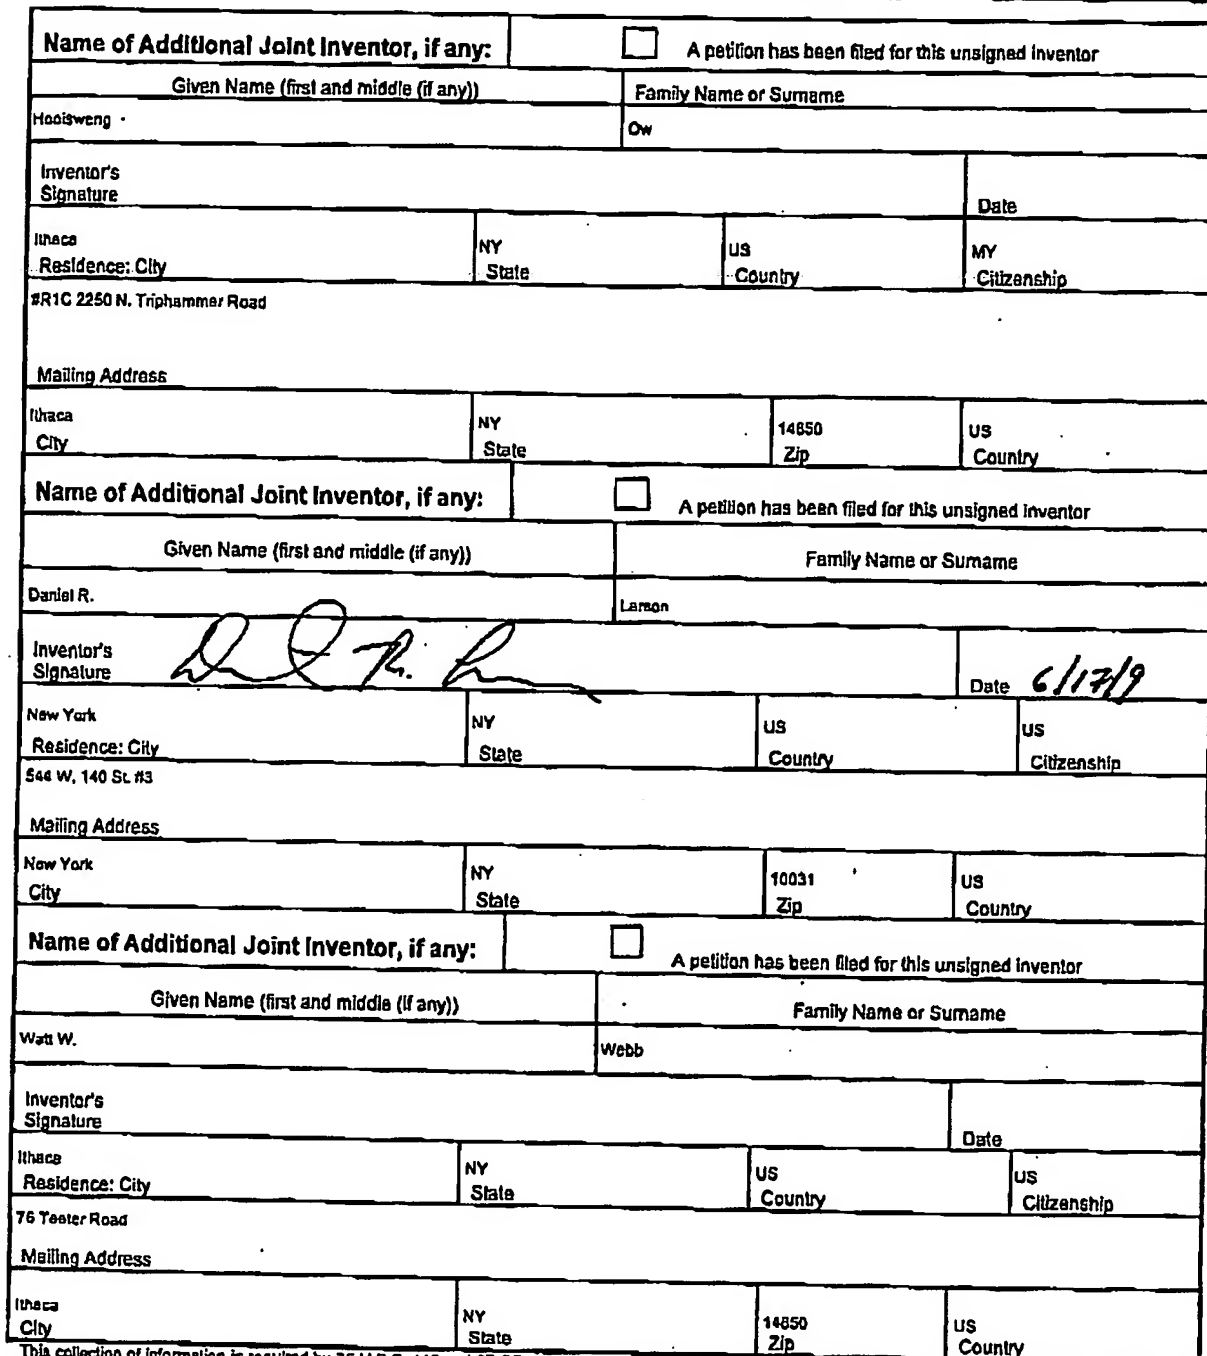 Name of Additional Joint Inventor, if any: A petition has been filed for this unsigned inventor
Given Name (first and middle (if any)) Family Name or Surname
Hooisweng Ow
Inventor's
Signature Date
Ithaca NY US MY
Residence: City State Country Citizenship
#R1C 2250 N. Triphammer Road
Mailing Address
Ithaca NY 14850 US
City State Zip Country
Name of Additional Joint Inventor, if any: A petition has been filed for this unsigned inventor
Given Name (first and middle (if any)) Family Name or Surname
Daniel R. Larson
Inventor's
Signature Date 6/17/9
New York NY US US
Residence: City State Country Citizenship
544 W. 140 St. #3
Mailing Address
New York NY 10031 US
City State Zip Country
Name of Additional Joint Inventor, if any: A petition has been filed for this unsigned inventor
Given Name (first and middle (if any)) Family Name or Surname
Watt W. Webb
Inventor's
Signature Date
Ithaca NY US US
Residence: City State Country Citizenship
76 Teeter Road
Mailing Address
Ithaca NY 14850 US
City State Zip Country
This collection of information is required by 35 U.S.C.